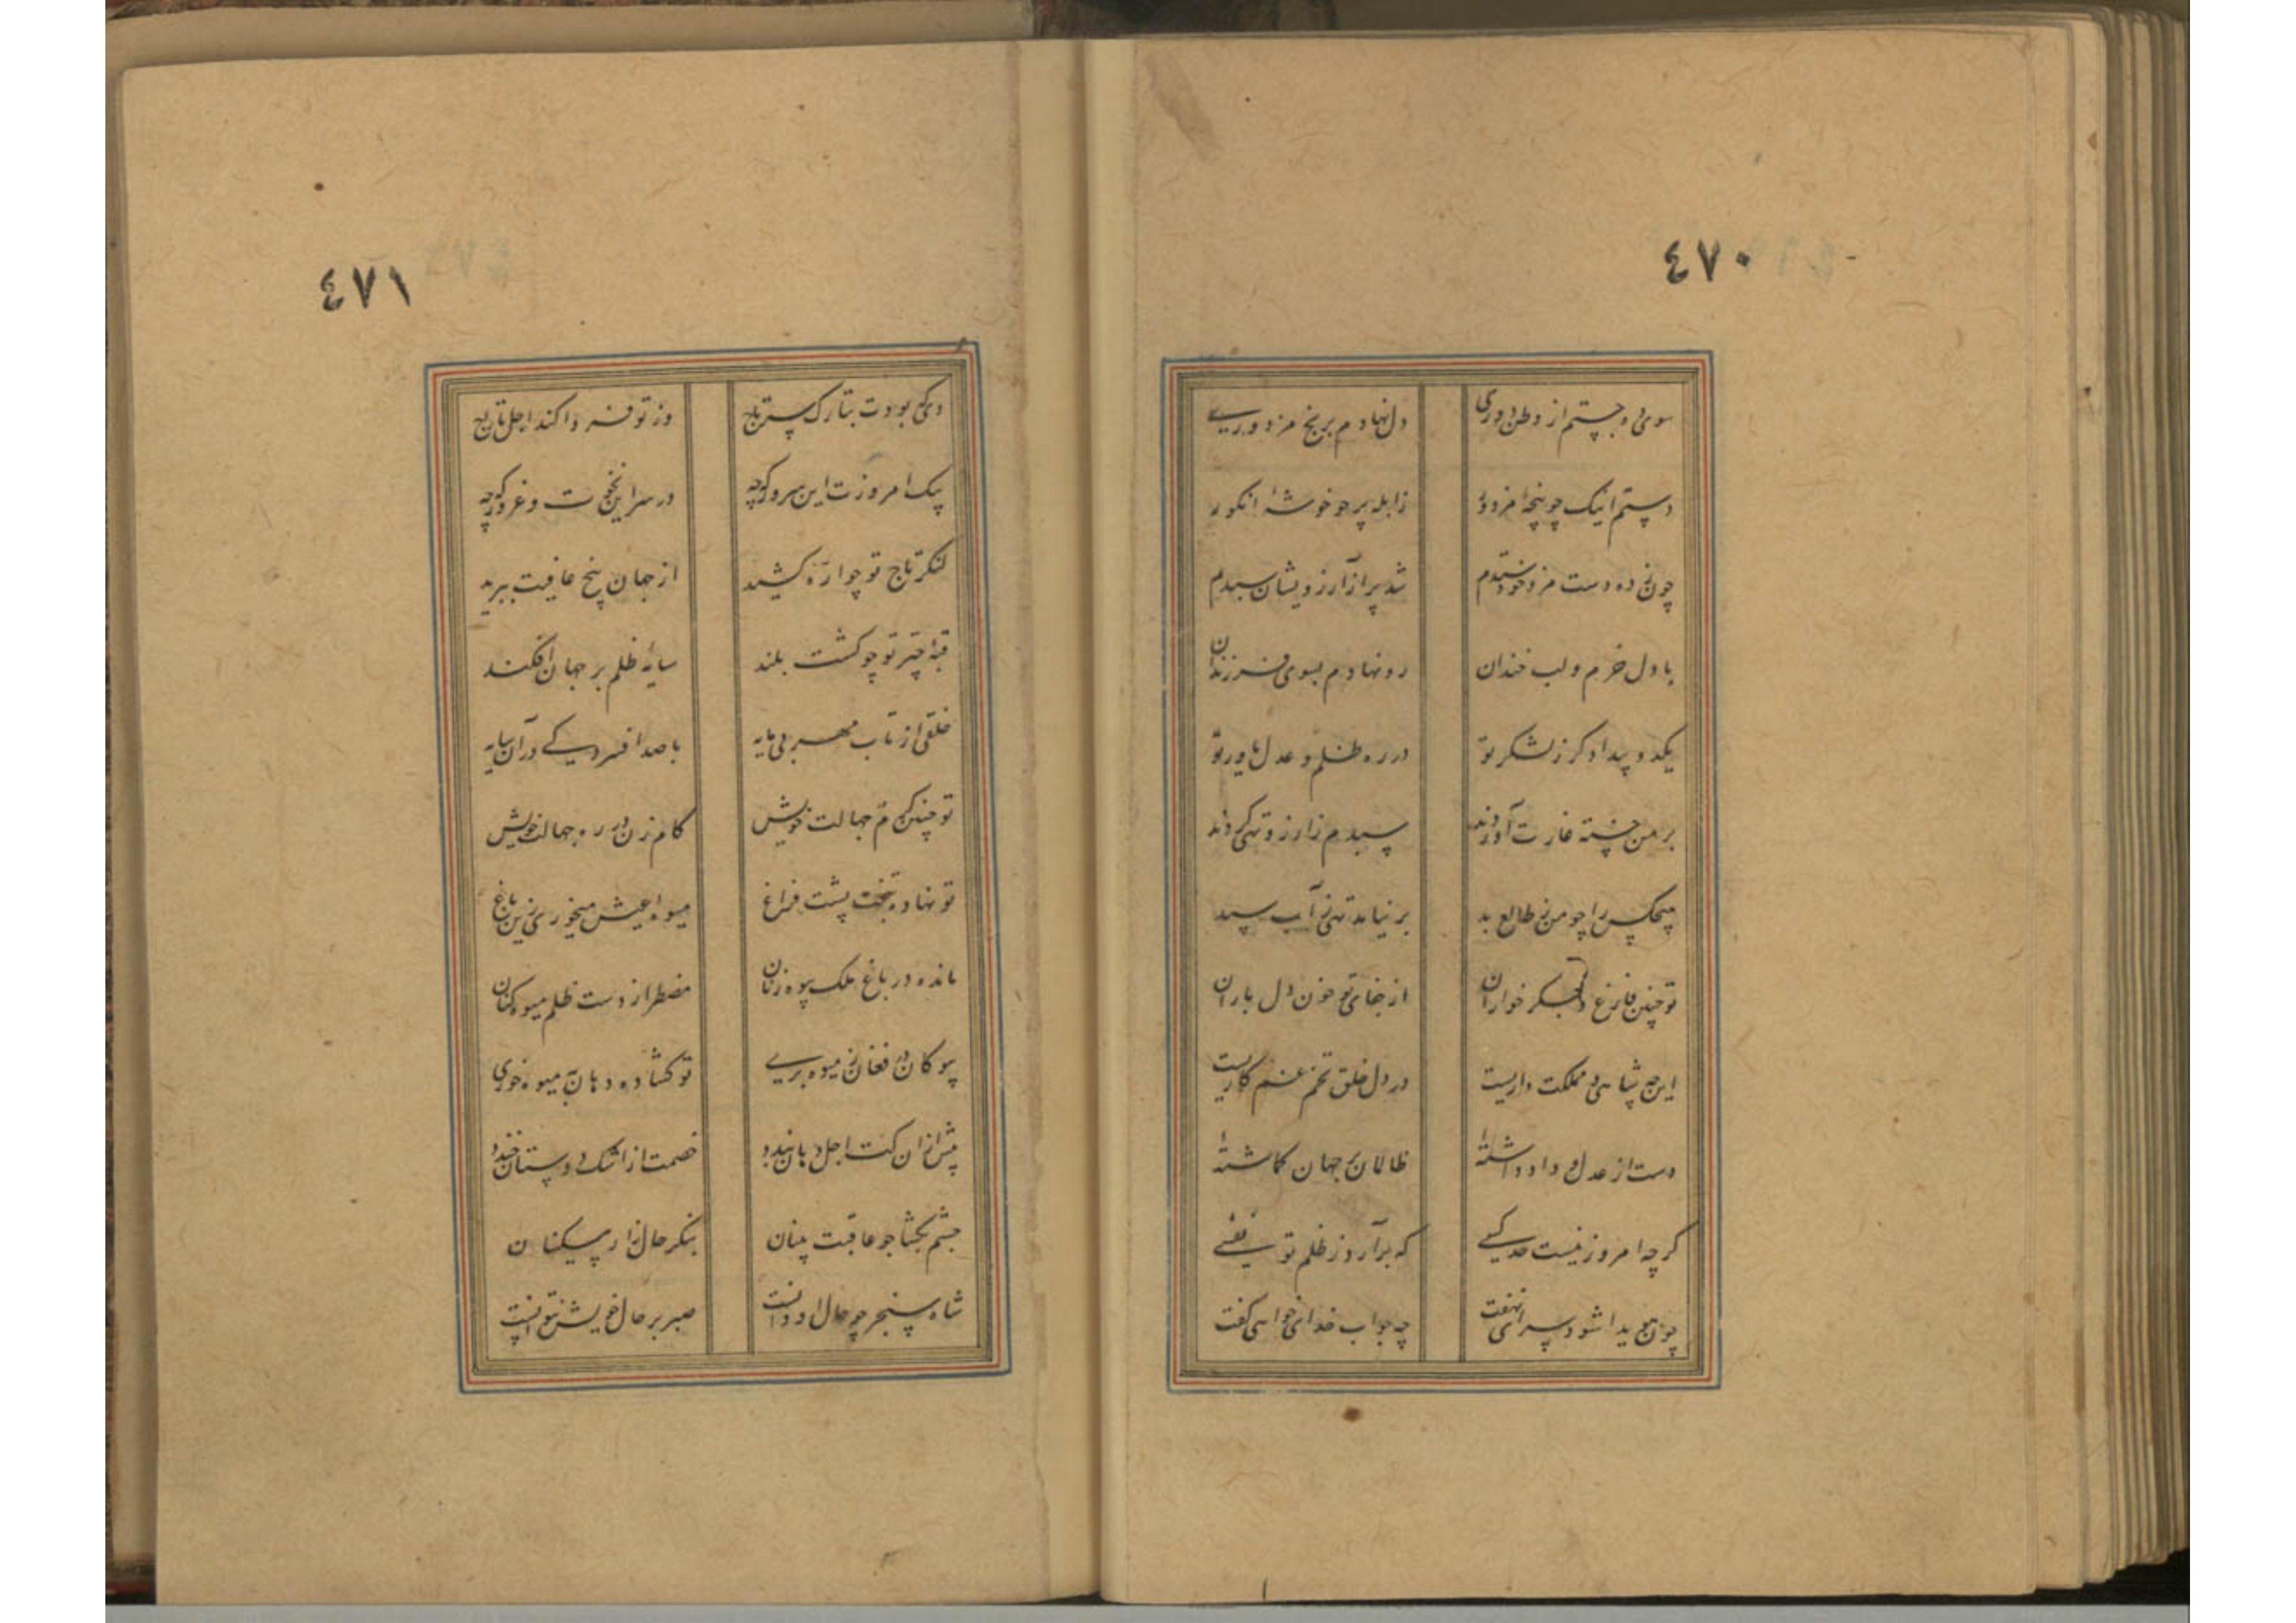 ٤٧٠
سوی ده جستم از وطن دوری دل نهادم برنج مزدوری
دستم اینک چو پنجه مزدور ز آبله پر چو خوشه انکور
چون ز ده دست مزد خود ستدم شد پر از آرزویشان سبدم
با دل خرم و لب خندان رو نهادم بسوی فرزندان
یکدو بیدادکر ز لشکر تو در ره ظلم و عدل یاور تو
بر من خسته غارت آوردند سبدم ز آرزو تهی کردند
هیچکس را چو من ز طالع بد بر نیاید تهی ز آب سبد
تو چنین فارغ و جکر خواران از جفای تو خون دل باران
این چه شاهی و مملکت داریست در دل خلق تخم غم کاریست
دست از عدل و داد داشته ظالمان بر جهان کماشته
کرچه امروز نیست حد کسی که برآرد ز ظلم تو نفسی
چون هویدا شود سرای نهفت چه جواب خدای خواهی کفت
٤٧١
دی که بودت بتارک سر تاج وز تو فردا کند اجل تاراج
یک امروزت این سرور که چه در سر این نخوت و غرور که چه
کنکر تاج تو چو اره کشید از جهان بیخ عافیت ببرید
قبه چتر تو چو کشت بلند سایه ظلم بر جهان افکند
خلقی از تاب مهر بی مایه با صد افسردکی در آن سایه
تو چنین کرم جهالت خویش کام زن در ره جهالت خویش
تو نهاده بتخت پشت فراغ میوه عیش میخوری زین باغ
مانده در باغ ملک بیوه زنان مضطر از دست ظلم میوه کنان
بیوکان در فغان ز میوه بری تو کشاده دهان بمیوه خوری
پیش از آن کت اجل دهان بندد خصمت از اشک دوستان خندد
چشم بکشا چو عاقبت بینان بنکر حال زار مسکینان
شاه سنجر چو حال او دانست صبر بر حال خویش نتوانست